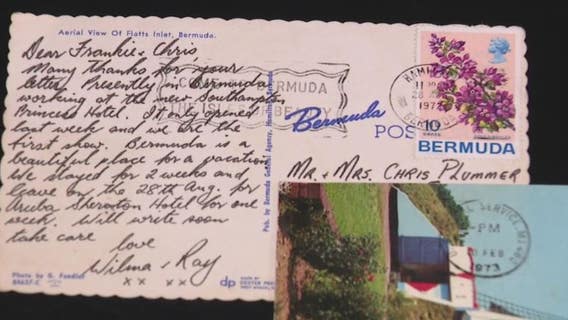 Aerial View Of Flatts Inlet, Bermuda.
Dear Frankie & Chris
Many thanks for your
letter. Presently in Bermuda
working at the new Southampton
Princess Hotel. It only opened
last week and we are the
first show. Bermuda is a
beautiful place for a vacation
We stayed for 2 weeks and
leave on the 28th Aug. for
Aruba Sheraton Hotel for one
week. Will write soon
take care
love
Wilma & Ray
xx xx
Photo by G.
dp
MADE BY
DEXTER PRESS
Pub. by Bermuda Agency, Hamilton, Bermuda
BERMUDA
THE ISL
Bermuda
POS
HAMIL
1972
10c
BERMUDA
MR. & MRS. CHRIS PLUMMER
SERVICE, MI
PM
FEB
1973